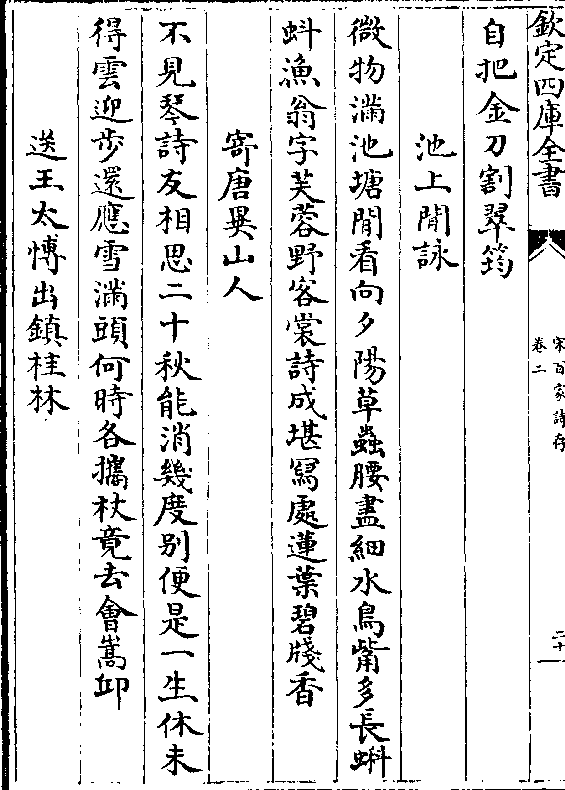 欽定四庫全書
宋百家詩存
卷二
二十一
自把金刀割翠筠
池上閒詠
微物滿池塘閒看向夕陽草蟲腰盡細水鳥觜多長蝌
蚪漁翁字芙蓉野客裳詩成堪寫處蓮葉碧牋香
寄唐異山人
不見琴詩友相思二十秋能消幾度别便是一生休未
得雲迎步還應雪滿頭何時各攜杖竟去會嵩邱
送王太慱出鎮桂林